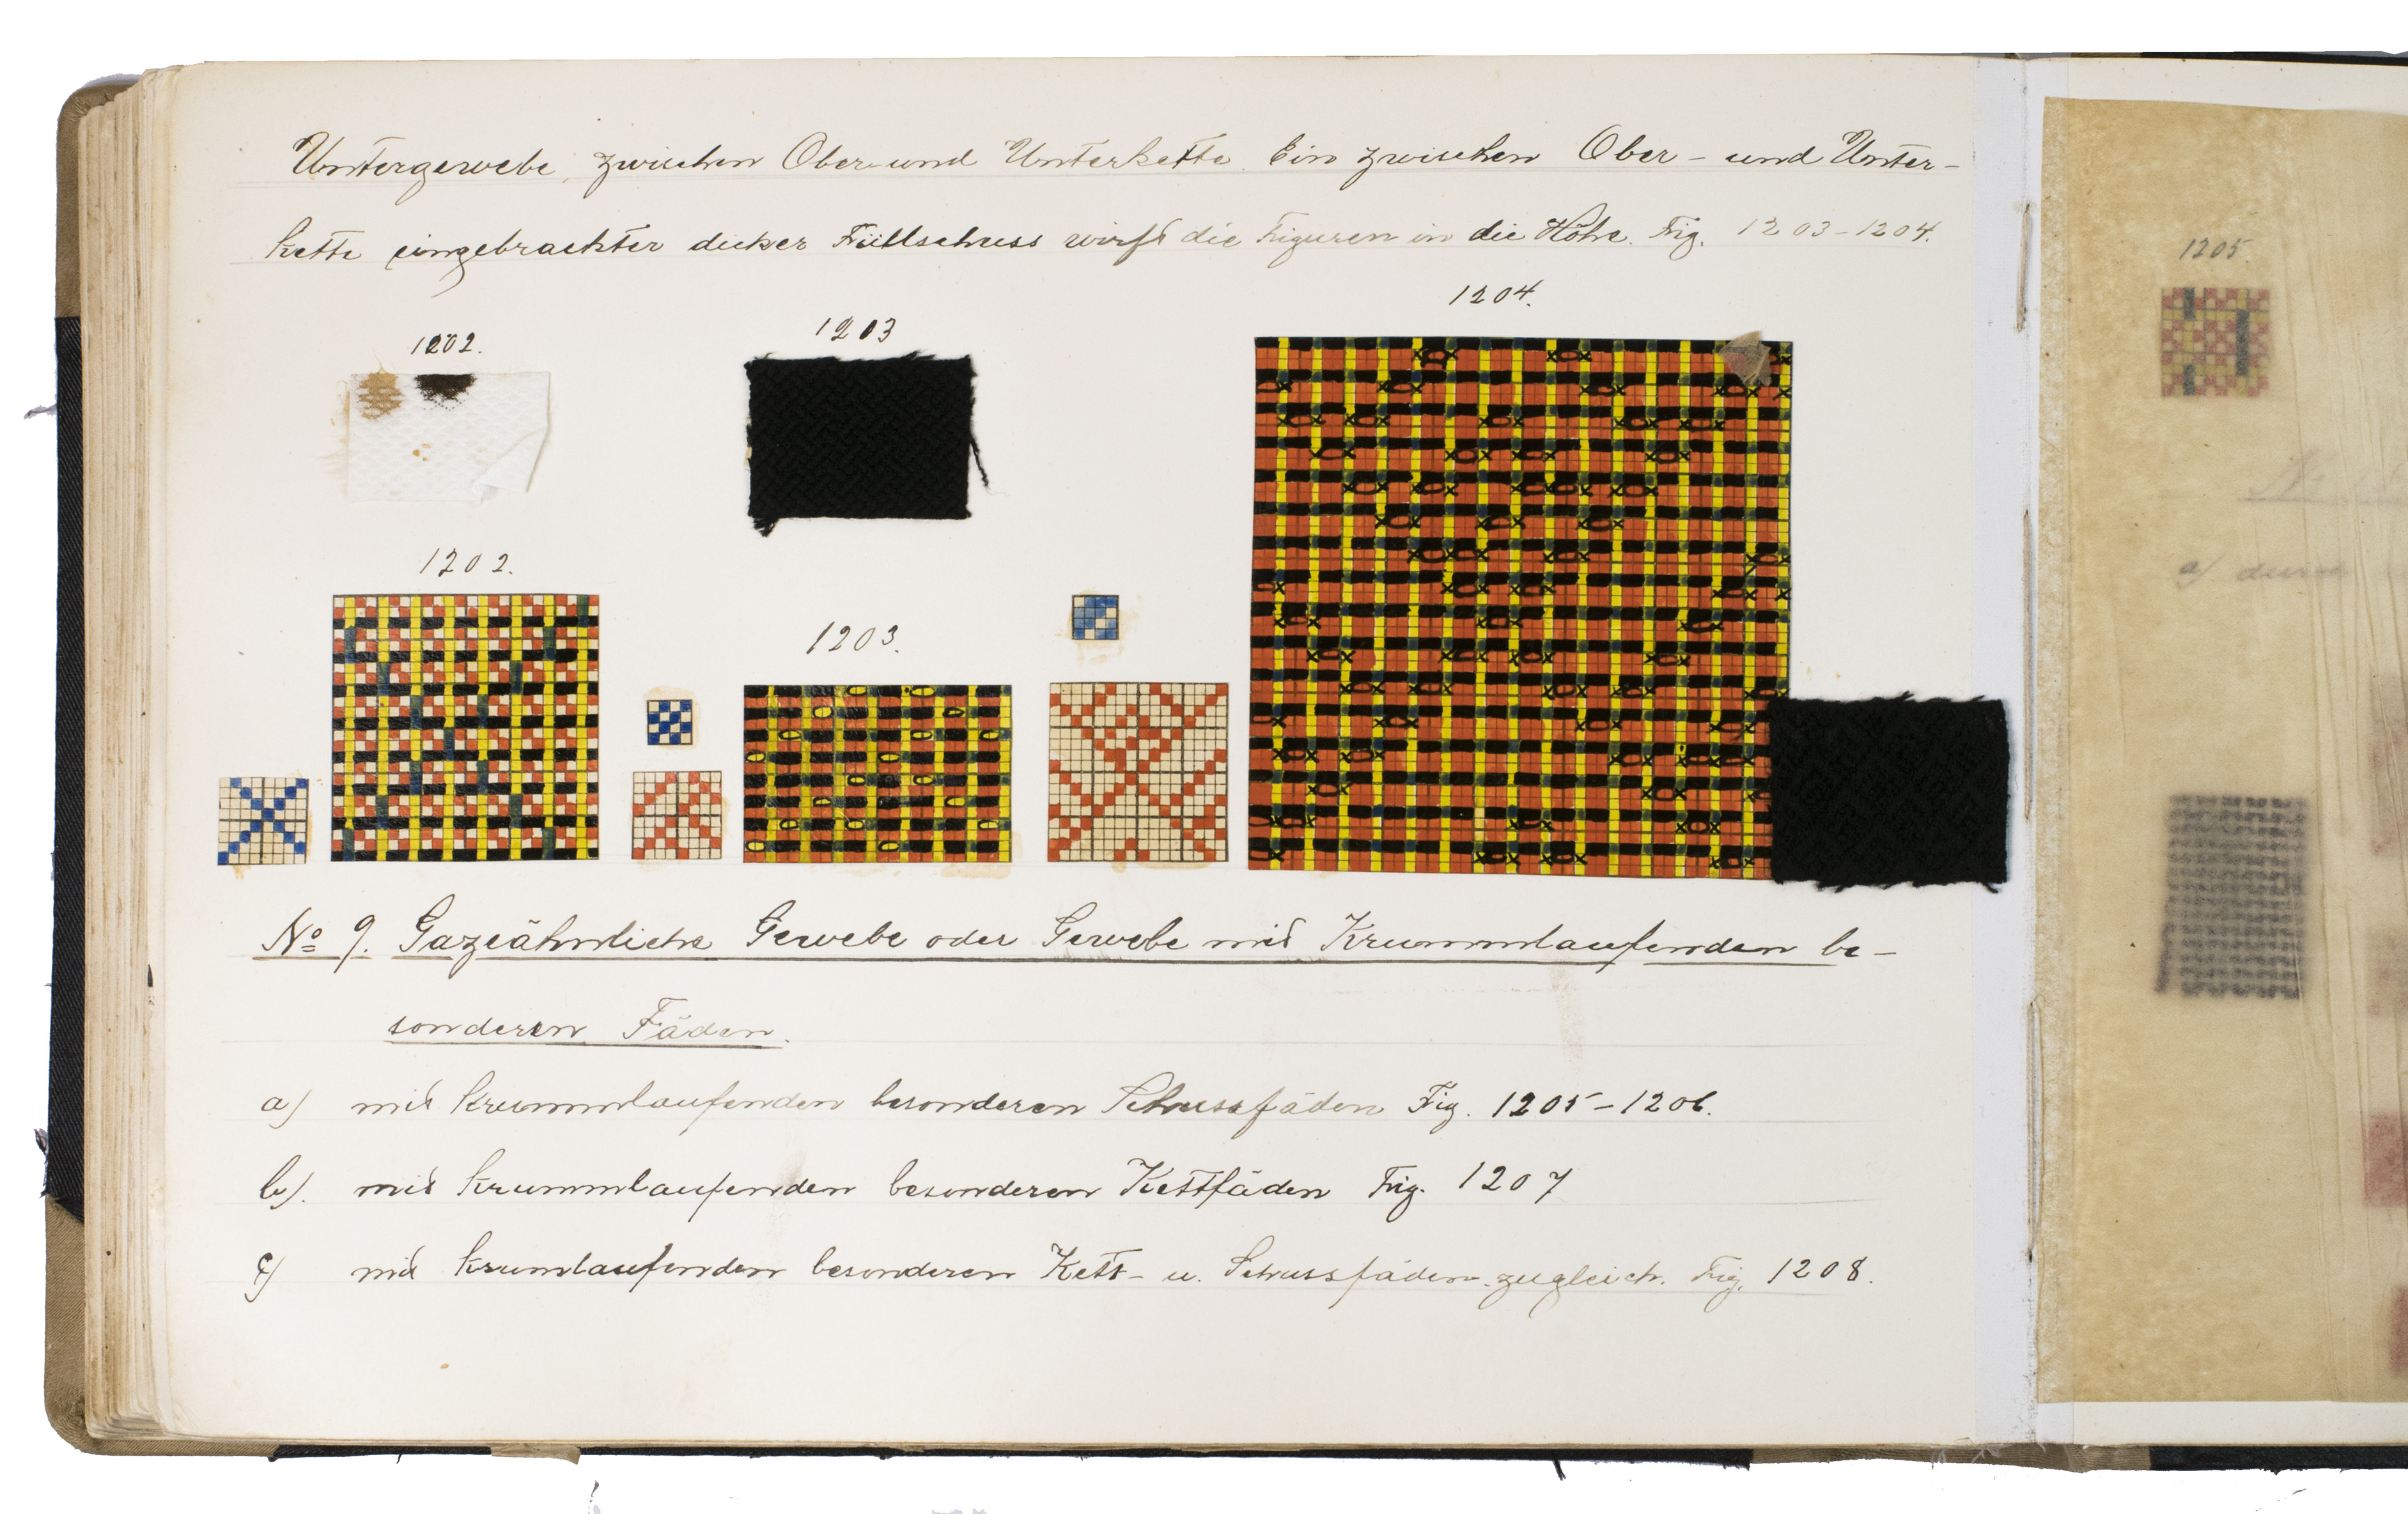 Untergewebe, zwischen Ober- und Unterkette. Ein zwischen Ober- und Unter-
kette eingebrachter dicker Füllschuss wirft die Figuren in die Höhe. Fig. 1203-1204.
1202.
1203
1204.
1202.
1203.
No 9. Gazeähnliche Gewebe oder Gewebe mit Krummlaufenden be-
sonderen Fäden.
a) mit krummlaufenden besonderen Schussfäden Fig. 1205-1206.
b). mit krummlaufenden besonderen Kettfäden Fig. 1207
c) mit krumlaufenden besonderen Kett- u. Schussfäden zugleich. Fig. 1208.
1205.